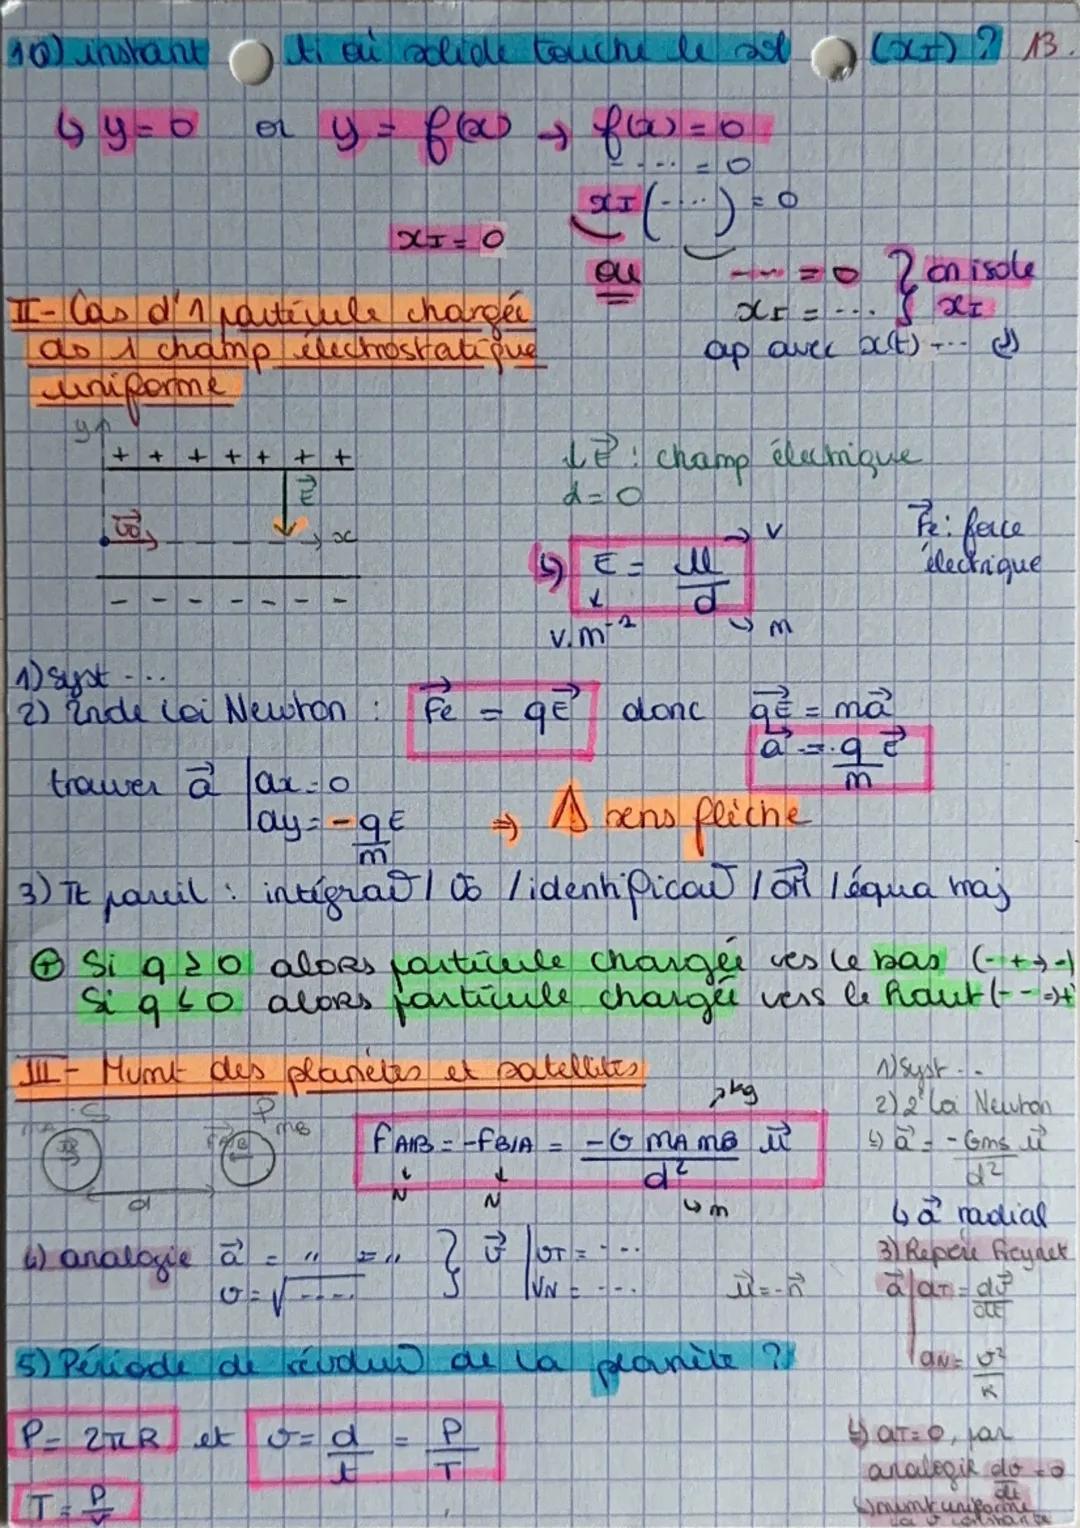 10) instant ti où solide touche le sol (xI) ? 13.
↳ y=0 or y = f(x) → f(x)=0
- .... = 0
xI(-...) = 0
xI = 0
ou
---- = 0 } on isole
xI = ... } xI
ap avec x(t) ---
II- Cas d'1 particule chargée
ds 1 champ électrostatique
uniforme
y
+ + + + + + +
E→
v0→ x
- - - - - - -
E→ : champ électrique
d = 0
↳ E = U/d → V
V.m⁻² → m
Fe→ : force
électrique
1) Syst ...
2) 2nde loi Newton : Fe→ = qE→ donc qE→ = ma→
a→ = q/m E→
trouver a→ | ax = 0
| ay = -qE/m ⇒ ⚠ sens flèche
3) Tt pareil : / identificat° / OM→ / équa maj
⊕ Si q ≥ 0 alors particule chargée vers le bas (- + → -)
Si q ≤ 0 alors particule chargée vers le haut (- - ⇒ +
III- Mvmt des planètes et satellites
S P
mA mB
d
FA/B = -FB/A = -G mA mB / d² u→
kg
N N m
1) Syst ..
2) 2e Loi Newton
↳ a→ = -Gms/d² u→
↳ a→ radial
3) Repère Freynet
a→ | aT = dv→/dt
| aN = v²/R
↳ aT = 0, par
analogie dv/dt = 0
↳ mvmt uniforme
car v constante
4) analogie a→ = " = " } v→ | vT = ...
v = √---.. } | vN = ... u→ = -n→
5) Période de révolut° de la planète ?
P = 2πR et v = d/t = P/T
T = P/v